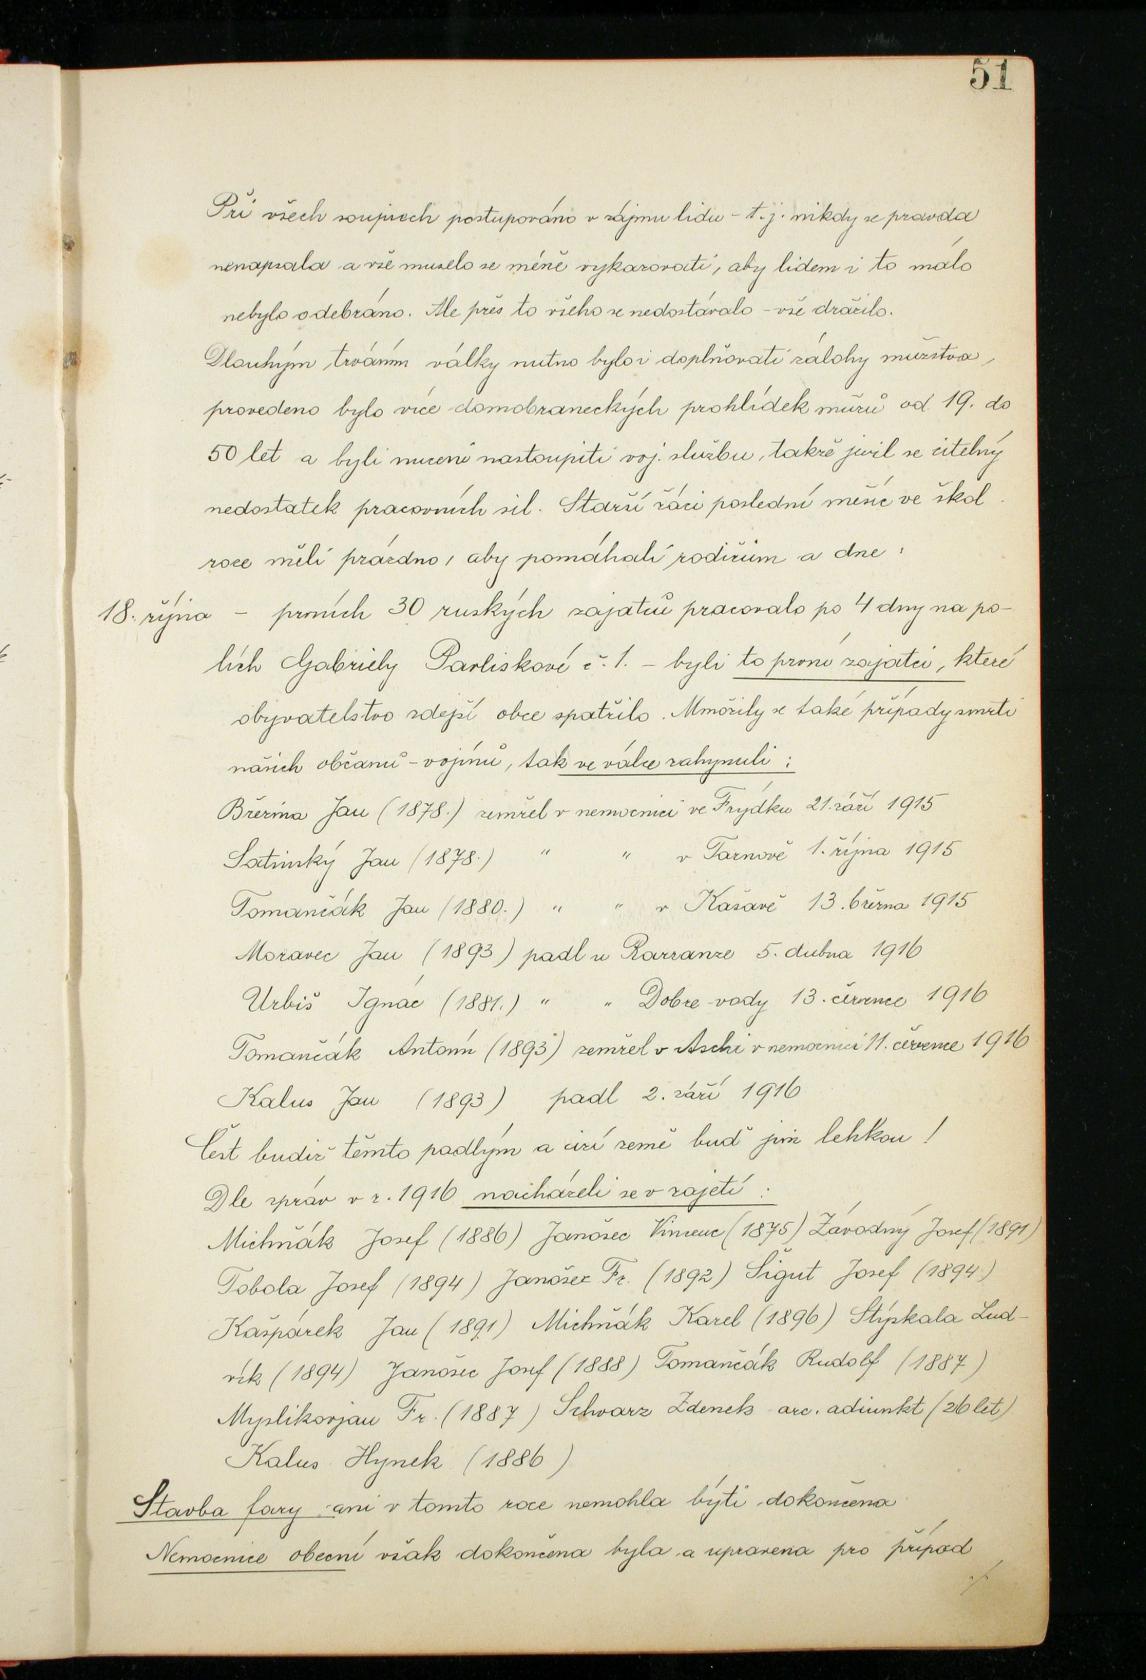 51
Při všech soupisech postupováno v zájmu lidu - t.j. nikdy se pravda
nenapsala a vše muselo se méně vykazovati, aby lidem i to málo
nebylo odebráno. Ale přes to všeho se nedostávalo - vše dražilo.
Dlouhým trváním války nutno bylo i doplňovati zálohy mužstva,
provedeno bylo více domobraneckých prohlídek mužů od 19. do
50 let a byli nuceni nastoupiti voj. službu, takže jevil se citelný
nedostatek pracovních sil. Starší žáci poslední měsíc ve škol.
roce měli prázdno, aby pomáhali rodičům a dne:
18. října - prvních 30 ruských zajatců pracovalo po 4 dny na po-
lích Gabriely Pavliskové č. 1. - byli to první zajatci, které
obyvatelstvo zdejší obce spatřilo. Množily se také případy smrti
našich občanů - vojínů, tak ve válce zahynuli:
Březina Jan (1878.) zemřel v nemocnici ve Frýdku 21. září 1915
Satinský Jan (1878.) " " v Tarnově 1. října 1915
Tomančák Jan (1880.) " " v Kašavě 13. března 1915
Moravec Jan (1893) padl u Rarranze 5. dubna 1916
Urbiš Ignác (1881.) " " Dobre-vody 13. července 1916
Tomančák Antonín (1893) zemřel v Aschi v nemocnici 11. července 1916
Kalus Jan (1893) padl 2. září 1916
Čest budiž těmto padlým a cizí země buď jim lehkou!
Dle zpráv v r. 1916 nacházeli se v zajetí:
Michňák Josef (1886) Janošec Vincenc (1875) Závodný Josef (1891)
Tobola Josef (1894) Janošec Fr. (1892) Šigut Josef (1894)
Kašpárek Jan (1891) Michňák Karel (1896) Stýskala Lud-
vík (1894) Janošec Josef (1888) Tomančák Rudolf (1887)
Myslikovjan Fr. (1887) Schwarz Zdenek arc. adjunkt (26 let)
Kalus Hynek (1886)
Stavba fary ani v tomto roce nemohla býti dokončena
Nemocnice obecní však dokončena byla a upravena pro případ
./.